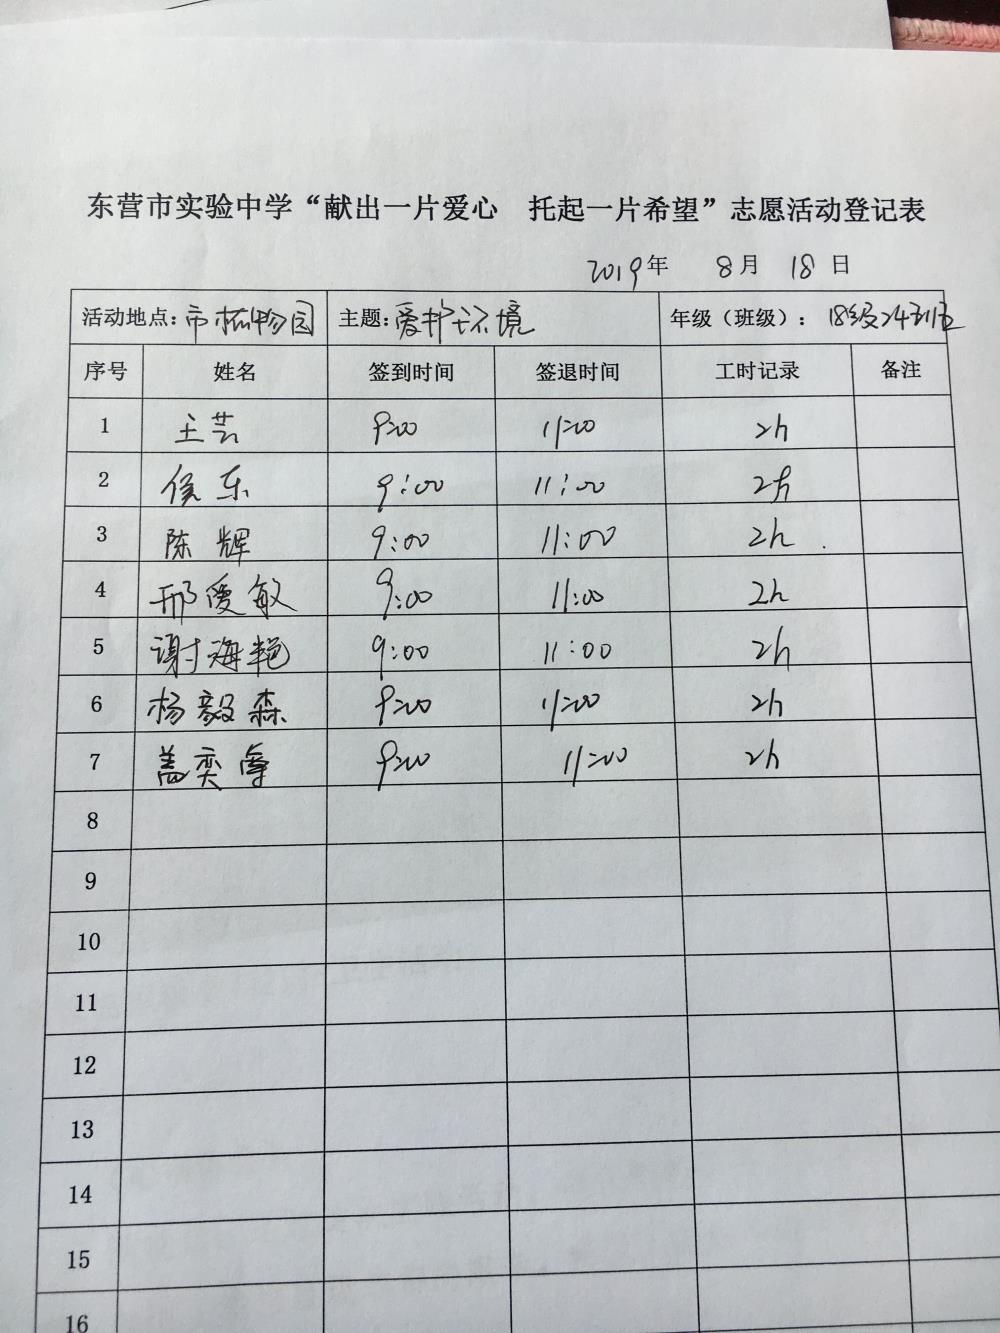 东营市实验中学“献出一片爱心 托起一片希望”志愿活动登记表
2019年 8月 18日
活动地点：市植物园 主题：爱护环境 年级（班级）：18级24班
序号 姓名 签到时间 签退时间 工时记录 备注
1 王芸 9:00 11:00 2h
2 侯东 9:00 11:00 2h
3 陈辉 9:00 11:00 2h
4 邢爱敏 9:00 11:00 2h
5 谢海艳 9:00 11:00 2h
6 杨毅森 9:00 11:00 2h
7 盖奕 9:00 11:00 2h
8
9
10
11
12
13
14
15
16